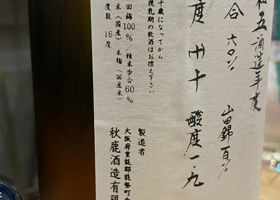 和五酒造年度
合 六〇% 山田錦百%
度 廿十 酸度一.九
十歳になってから
授乳期の飲酒はお控え下さい
田錦100%/精米歩合60%
米(国産)、米麹(国産米)
度数 16度
製造者
大阪府豊能郡能勢町
秋鹿酒造有限